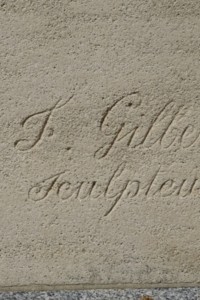 F. Gilbe
Sculpteu